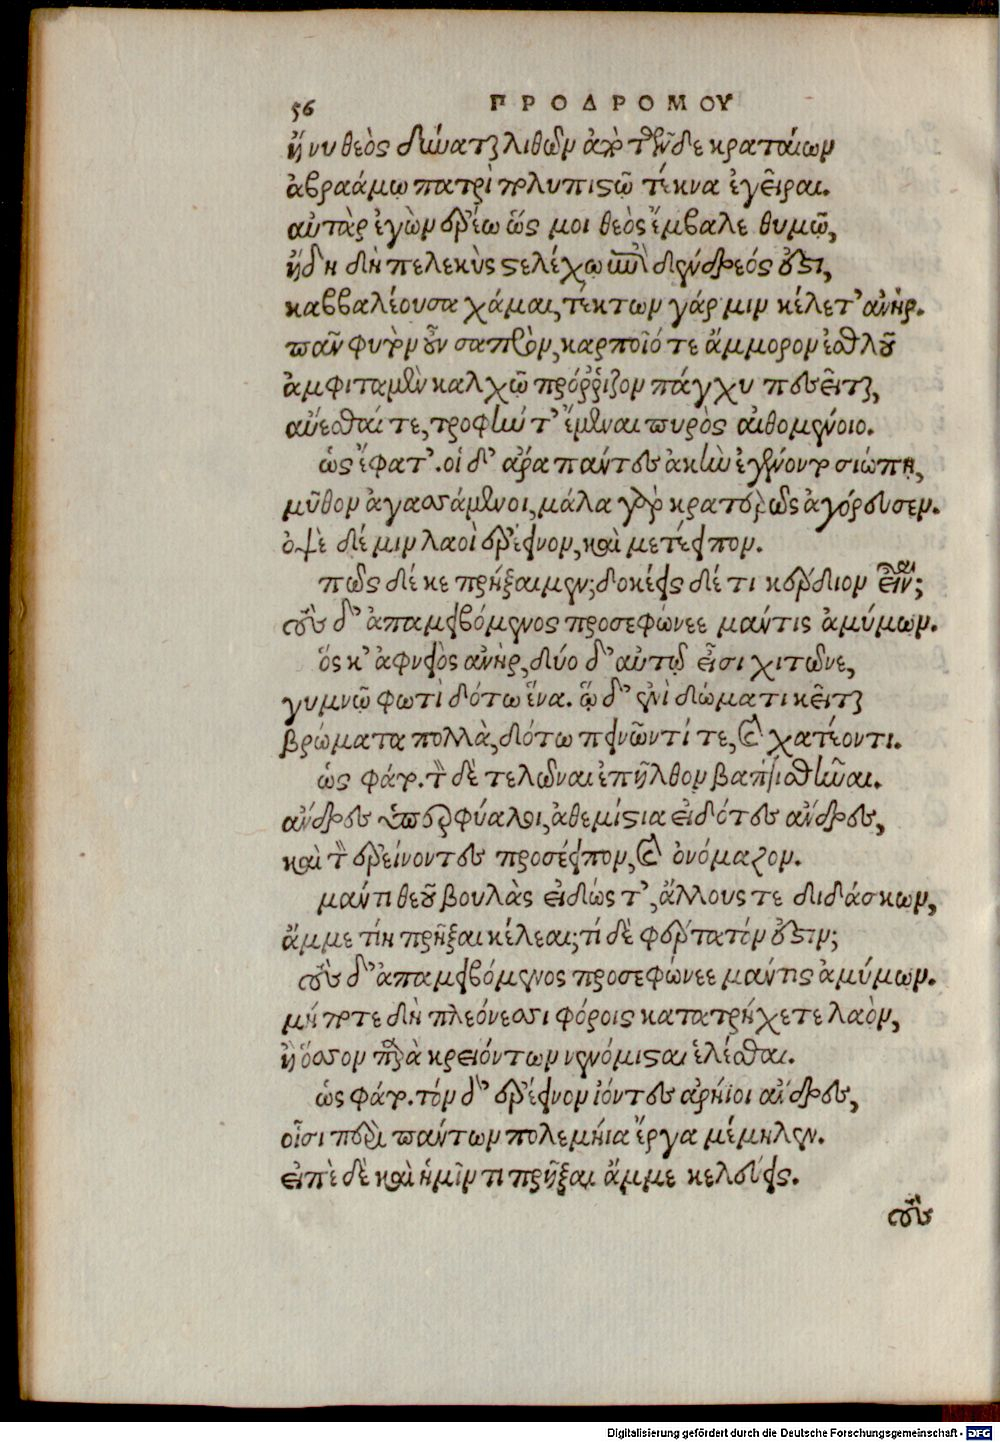 56 ΠΡΟΔΡΟΜΟΥ
ἤ νυ θεὸς δύναται λιθῶν ἀπὸ τῶνδε κραταιῶν
ἀβραάμῳ πατρὶ πολυπίστῳ τέκνα ἐγεῖραι.
αὐτὰρ ἐγὼν ἐρέω ὥς μοι θεὸς ἔμβαλε θυμῷ,
ἤδη δὴ πελεκὺς στελέχῳ ἐπὶ δένδρεός ἐστι,
καββαλέουσα χάμαι, τέκτων γάρ μιν κέλετ' ἀνήρ.
πᾶν φυτὸν οὖν σαπρὸν, καρποῖό τε ἄμμορον ἐσθλοῦ
ἀμφιταμὼν χαλκῷ πρόρριζον πάγχυ ποιεῖται,
αὔεσθαί τε, τροφὴν τ' ἔμεναι πυρὸς αἰθομένοιο.
ὡς ἔφατ'. οἱ δ' ἄρα πάντες ἀκὴν ἐγένοντο σιώπῃ,
μῦθον ἀγασσάμενοι, μάλα γὰρ κρατερῶς ἀγόρευσεν.
ὀψὲ δέ μιν λαοὶ ἐρέεινον, καὶ μετέειπον.
πῶς δέ κε πρήξαιμεν; δοκέεις δέ τι κέρδιον εἶναι;
τοὺς δ' ἀπαμειβόμενος προσεφώνεε μάντις ἀμύμων.
ὅς κ' ἀφνειὸς ἀνὴρ, δύο δ' αὐτῷ εἶσι χιτῶνε,
γυμνῷ φωτὶ δότω ἕνα. ᾧ δ' ἐνὶ δώματι κεῖται
βρώματα πολλὰ, δότω πεινῶντί τε, καὶ χατέοντι.
ὡς φάτο. τοὶ δὲ τελῶναι ἐπῆλθον βαπτισθῆναι.
ἄνδρες ὑπερφύαλοι, ἀθεμίστια εἰδότες ἄνδρες,
καὶ τοὶ ἐρείνοντες προσέειπον, καὶ ὀνόμαζον.
μάντι θεοῦ βουλὰς εἰδώς τ', ἄλλους τε διδάσκων,
ἄμμε τίη πρῆξαι κέλεαι; τί δὲ φέρτατόν ἐστιν;
τοὺς δ' ἀπαμειβόμενος προσεφώνεε μάντις ἀμύμων.
μήποτε δὴ πλεόνεσσι φόροις κατατρήχετε λαὸν,
ἢ ὅσσον παρὰ κρειόντων νενόμισται ἑλέσθαι.
ὡς φάτο. τὸν δ' ἐρέεινον ἰόντες ἀρήϊοι ἄνδρες,
οἷσι περὶ πάντων πολεμήια ἔργα μέμηλεν.
εἰπὲ δὲ καὶ ἡμῖν τι πρῆξαι ἄμμε κελεύεις.
τοὺς
Digitalisierung gefördert durch die Deutsche Forschungsgemeinschaft - DFG